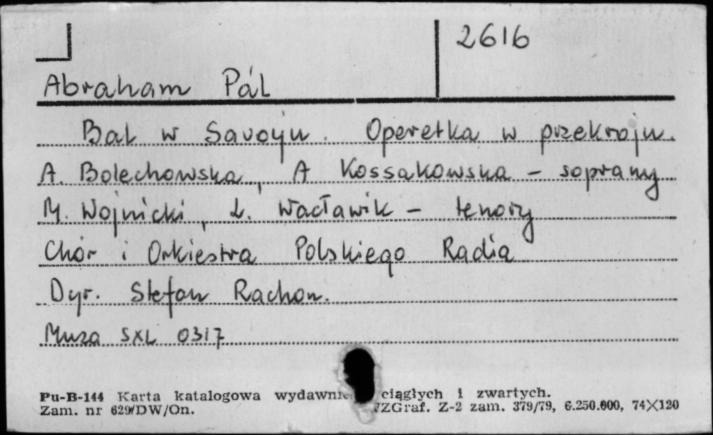 2616
Abraham Pál
Bal w Savoyu. Operetka w przekroju.
A. Bolechowska, A Kossakowska - soprany
M. Wojnicki, L. Wacławik - tenory
Chór i Orkiestra Polskiego Radia
Dyr. Stefan Rachoń.
Muza SXL 0317
Pu-B-144 Karta katalogowa ciągłych i zwartych.
Zam. nr 629/DW/On. Z-2 zam. 379/79, 6.250.000, 74×120